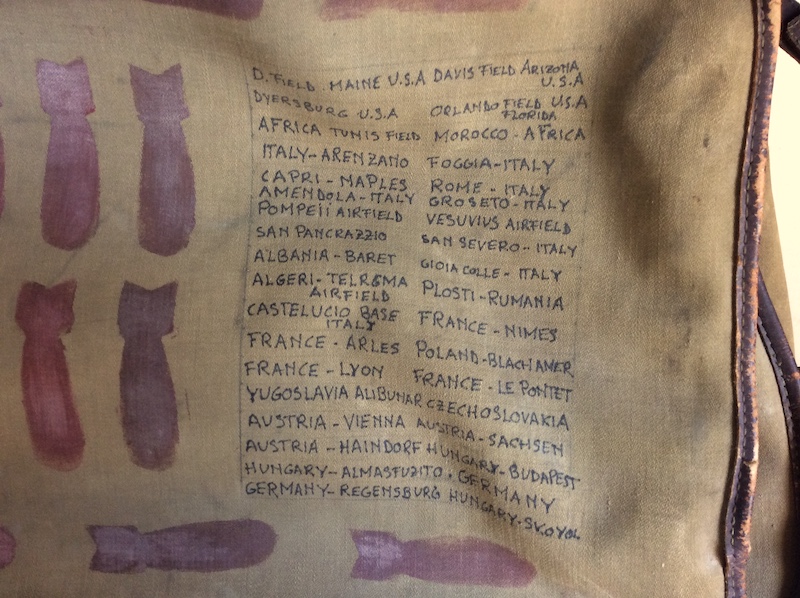 D. FIELD. MAINE U.S.A DAVIS FIELD ARIZONA
U.S.A
DYERSBURG U.S.A ORLANDO FIELD U.S.A
FLORIDA
AFRICA TUNIS FIELD MOROCCO - AFRICA
ITALY - ARENZANO FOGGIA - ITALY
CAPRI - MAPLES ROME - ITALY
AMENDOLA - ITALY GROSETO - ITALY
POMPEII AIRFIELD VESUVIUS AIRFIELD
SAN PANCRAZZIO SAN SEVERO - ITALY
ALBANIA - BARET GIOIA COLLE - ITALY
ALGERI - TELRGMA PLOSTI - RUMANIA
AIRFIELD
CASTELUCIO BASE FRANCE - NIMES
ITALY
FRANCE - ARLES POLAND - BLACHAMER
FRANCE - LYON FRANCE - LE PONTET
YUGOSLAVIA ALIBUNAR CZECHOSLOVAKIA
AUSTRIA - VIENNA AUSTRIA - SACHSEN
AUSTRIA - HAINDORF HUNGARY - BUDAPEST
HUNGARY - ALMASFUZITO . GERMANY
GERMANY - REGENSBURG HUNGARY -